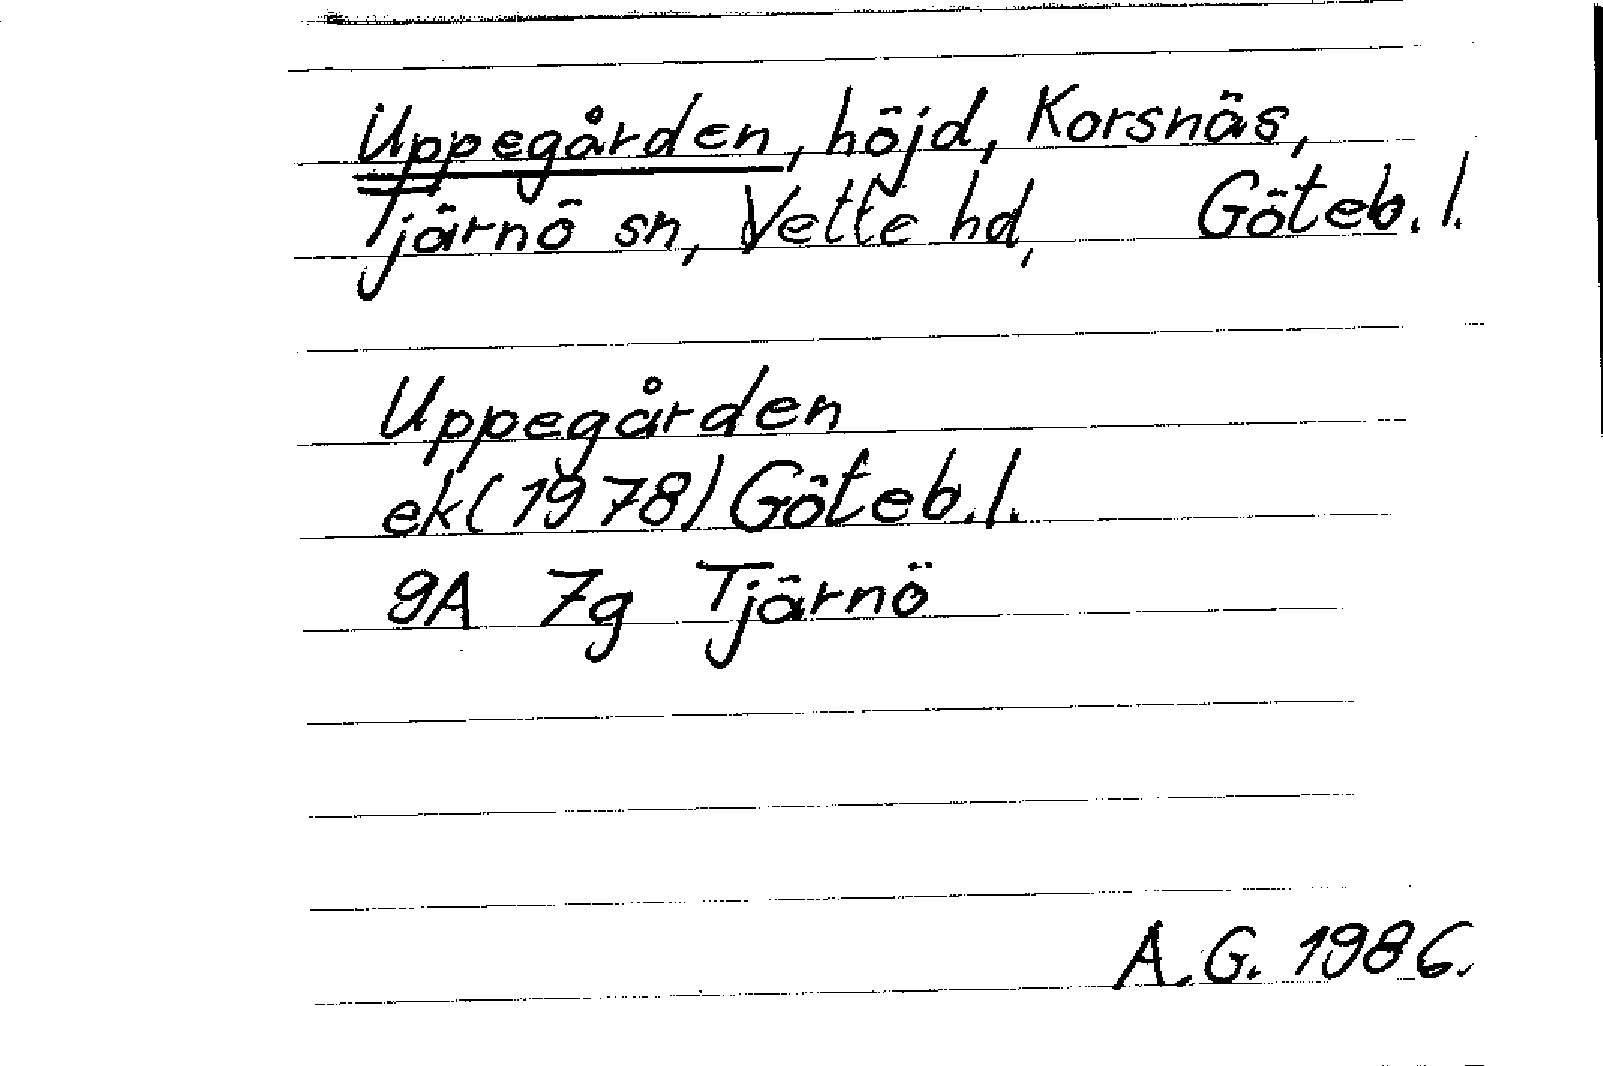 Uppegården, höjd, Korsnäs,
Tjärnö sn, Vette hd, Göteb. l.
Uppegården
ek (1978) Göteb. l.
9A 7g Tjärnö
A. G. 1986.